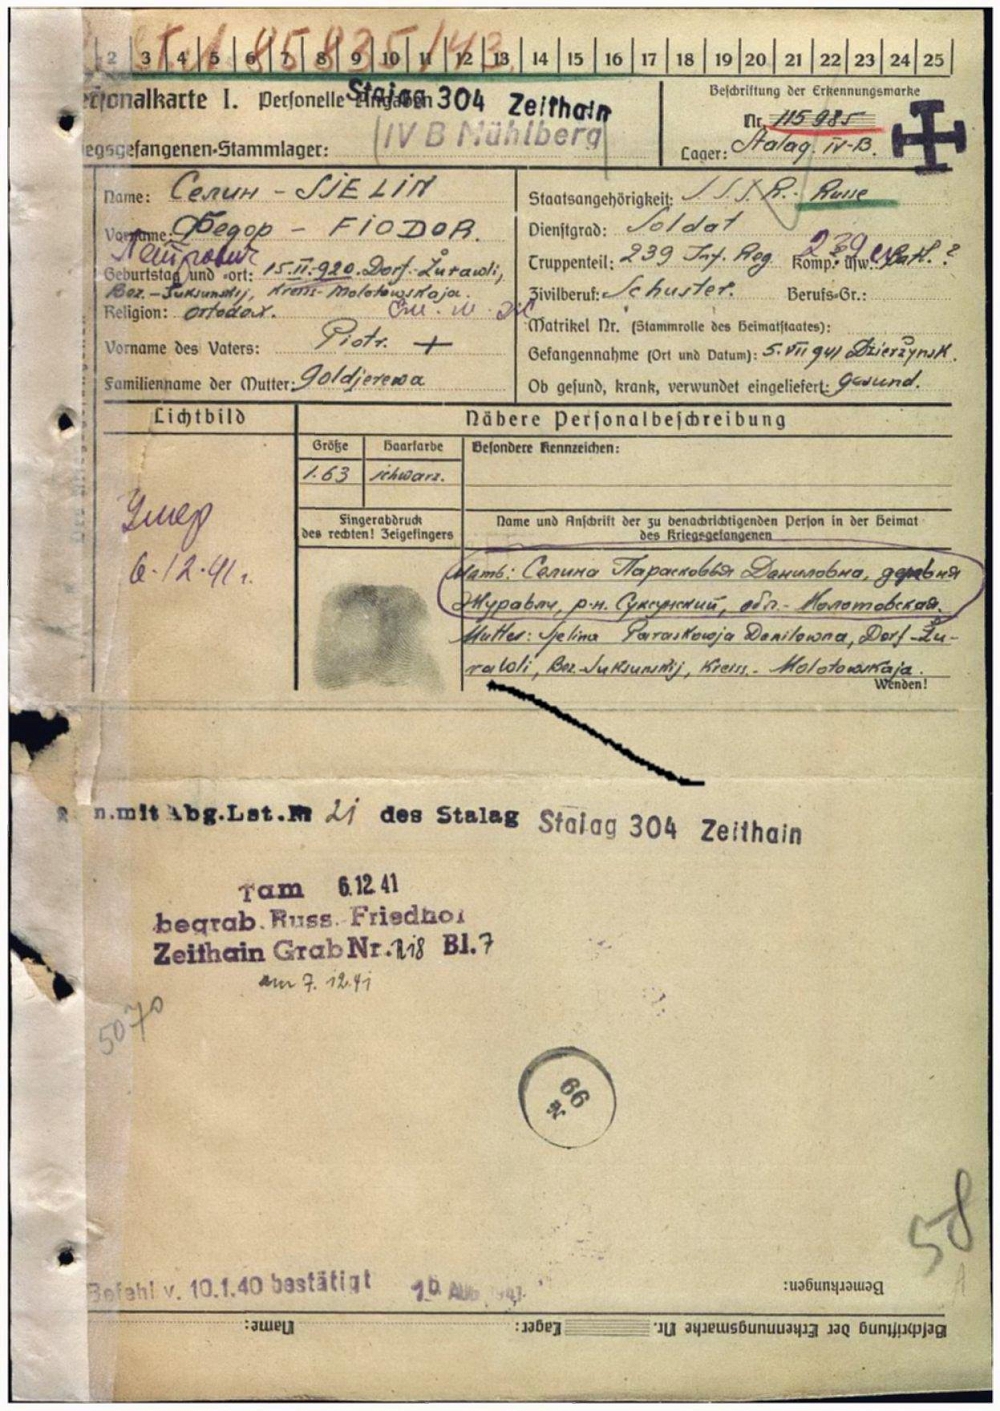 2 3 4 5 6 7 8 9 10 11 12 13 14 15 16 17 18 19 20 21 22 23 24 25
Personalkarte I. Personelle Angaben
Stalag 304 Zeithain
IV B Mühlberg
Kriegsgefangenen-Stammlager:
Beschriftung der Erkennungsmarke
Nr. 115985
Lager: Stalag IV-B.
Name: Селин - SJELIN
Vorname: Федор - FIODOR.
Петрович
Geburtstag und -ort: 15.II.920. Dorf-Żurawli,
Bez.-Suksunskij, Kreis-Molotowskaja.
Religion: ortodox.
Vorname des Vaters: Piotr. +
Familienname der Mutter: Goldjerewa
Staatsangehörigkeit: S.S.S.R.- Russe
Dienstgrad: Soldat
Truppenteil: 239 Inf. Reg. Komp. usw.: Batl. ?
239
Zivilberuf: Schuster. Berufs-Gr.:
Matrikel Nr. (Stammrolle des Heimatstaates):
Gefangennahme (Ort und Datum): 5.VII 941 Dzierżynsk.
Ob gesund, krank, verwundet eingeliefert: gesund.
Lichtbild
Nähere Personalbeschreibung
Größe Haarfarbe Besondere Kennzeichen:
1.63 schwarz.
Умер
6.12.41 г.
Fingerabdruck
des rechten! Zeigefingers
Name und Anschrift der zu benachrichtigenden Person in der Heimat
des Kriegsgefangenen
Мать: Селина Парасковья Даниловна, деревня
Журавли, р-н. Суксунский, обл.- Молотовская.
Mutter: Sjelina Paraskowja Danilowna, Dorf-Żu-
rawli, Bez.-Suksunskij, Kreis.- Molotowskaja.
Wenden!
n.mit Abg.Lst.Nr 21 des Stalag Stalag 304 Zeithain
am 6.12.41
begrab. Russ. Friedhof
Zeithain Grab Nr. 218 Bl. 7
am 7. 12.41
5070
66
58
Befehl v. 10.1.40 bestätigt
Bemerkungen:
Name: Lager: Beschriftung der Erkennungsmarke Nr.